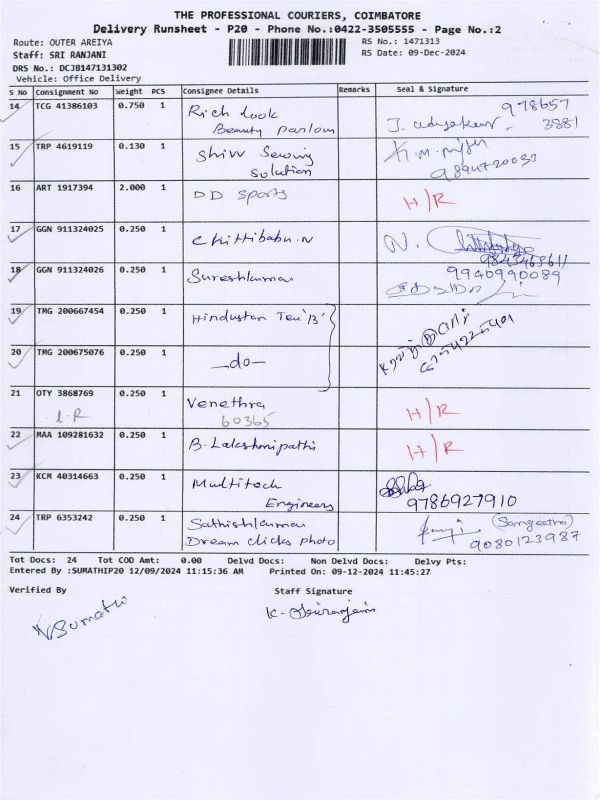 THE PROFESSIONAL COURIERS, COIMBATORE
Delivery Runsheet - P20 - Phone No.:0422-3505555 - Page No.:2
Route: OUTER AREIYA
RS No.: 1471313
Staff: SRI RANJANI
RS Date: 09-Dec-2024
DRS No.: DCJB147131302
Vehicle: Office Delivery
S No Consignment No Weight PCS Consignee Details Remarks Seal & Signature
14 TCG 41386103 0.750 1 Rich Look 978657
Beauty parlour 3881
15 TRP 4619119 0.130 1 Shiv Sewing
Solution
16 ART 1917394 2.000 1 DD Sports H/R
17 GGN 911324025 0.250 1 Chittibabu.N N.
18 GGN 911324026 0.250 1 Sureshkumar 9940990089
19 TMG 200667454 0.250 1 Hindustan Tex 'B'
20 TMG 200675076 0.250 1 -do-
21 OTY 3868769 0.250 1 Venethra H/R
L-R 60365
22 MAA 109281632 0.250 1 B.Lakshmipathi H/R
23 KCM 40314663 0.250 1 Multitech
Engineers 9786927910
24 TRP 6353242 0.250 1 Sathishkumar (Sangeetha)
Dream clicks photo 9080123987
Tot Docs: 24 Tot COD Amt: 0.00 Delvd Docs: Non Delvd Docs: Delvy Pts:
Entered By :SUMATHIP20 12/09/2024 11:15:36 AM Printed On: 09-12-2024 11:45:27
Verified By Staff Signature
Sumathi